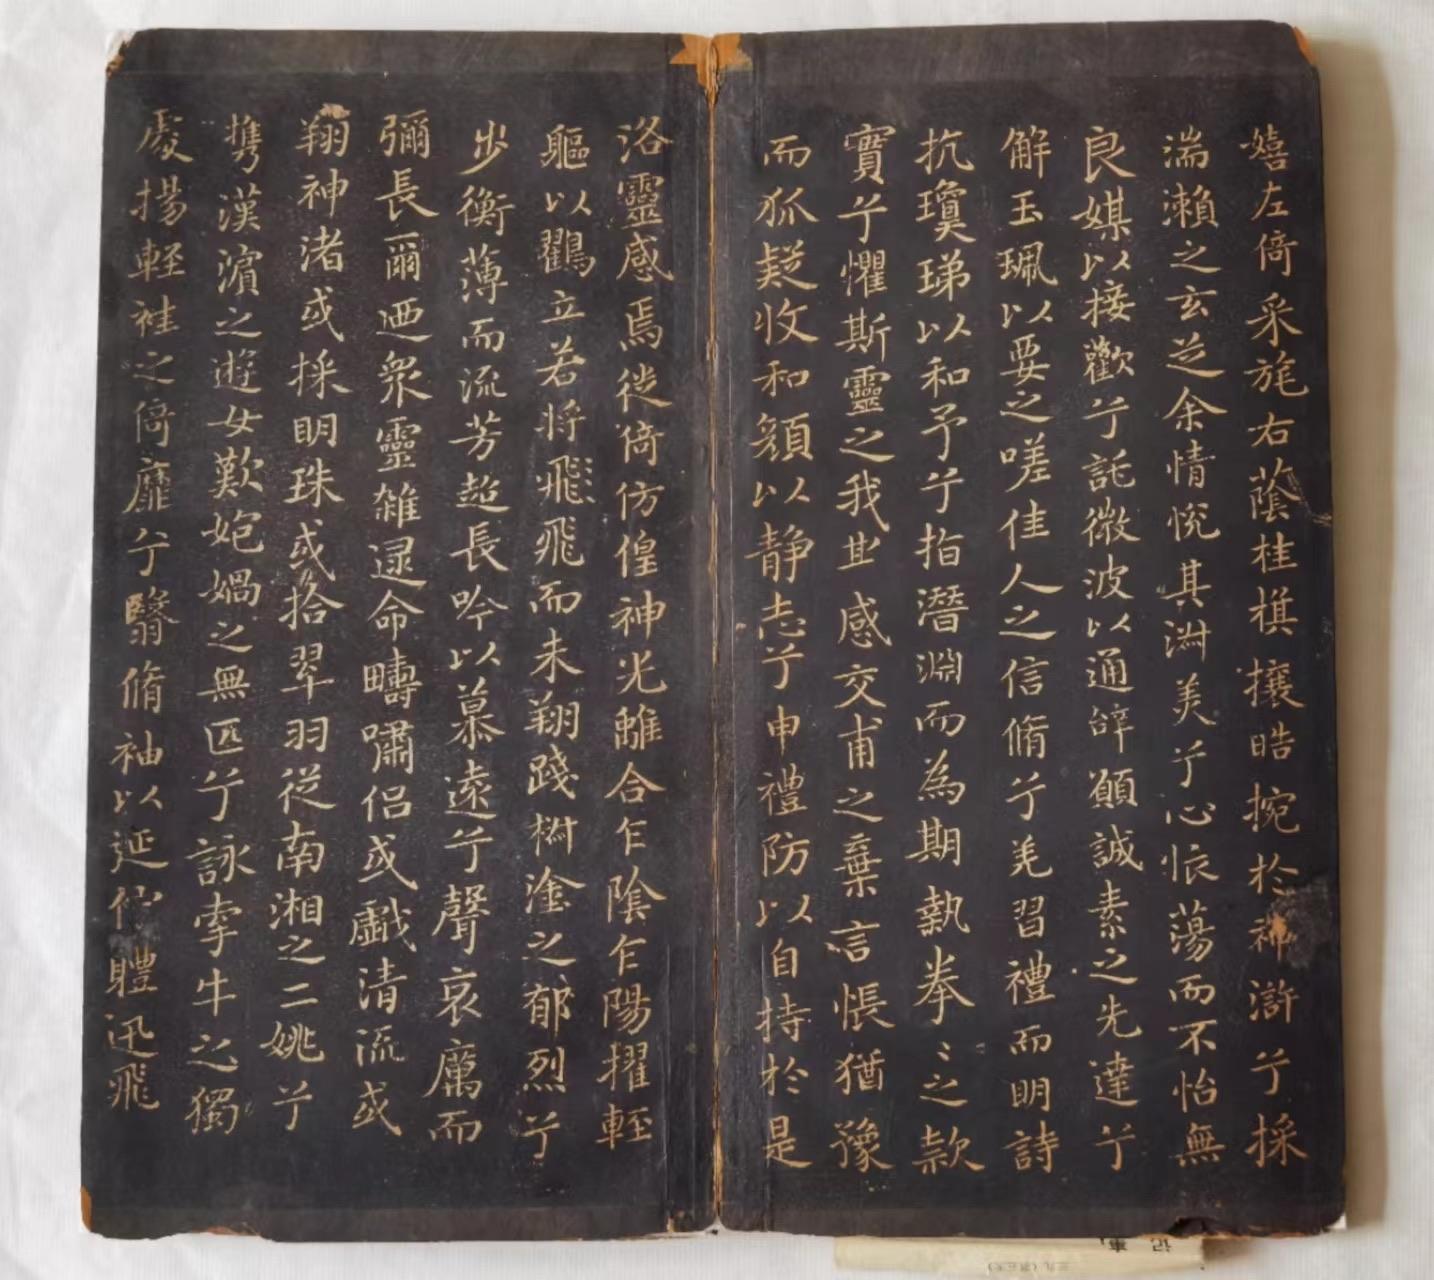 嬉左倚采旄右蔭桂棋攘皓捥於神滸兮採
湍瀨之玄芝余情悅其淑美兮心惊蕩而不怡無
良媒以接歡兮託微波以通辭願誠素之先達兮
解玉珮以要之嗟佳人之信脩兮羌習禮而明詩
抗瓊珶以和予兮指潛淵而為期執拳〻之款
實兮懼斯靈之我欺感交甫之棄言悵猶豫
而狐疑收和顏以静志兮申禮防以自持於是
洛靈感焉徙倚仿偟神光離合乍陰乍陽擢輕
軀以鸖立若将飛飛而未翔踐椒塗之郁烈兮
步衡薄而流芳超長吟以慕遠兮聲哀厲而
彌長爾迺衆靈雜遝命疇嘯侣或戲清流或
翔神渚或採明珠或拾翠羽從南湘之二姚兮
攜漢濵之遊女歎匏媧之無匹兮詠牽牛之獨
處揚輕袿之倚靡兮翳脩袖以延佇體迅飛